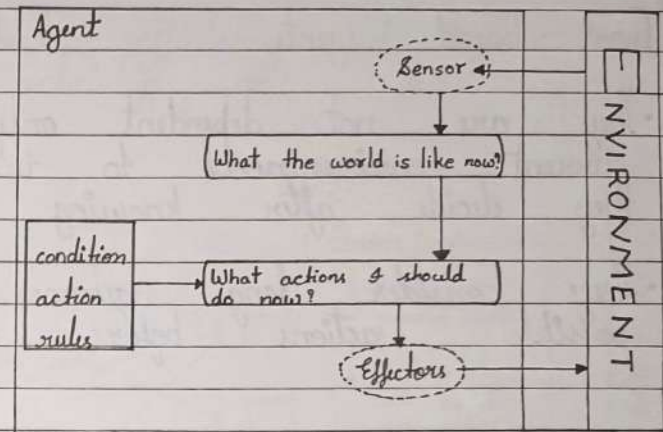 Agent
Sensor
What the world is like now?
condition
action
rules
What actions I should
do now?
Effectors
ENVIRONMENT